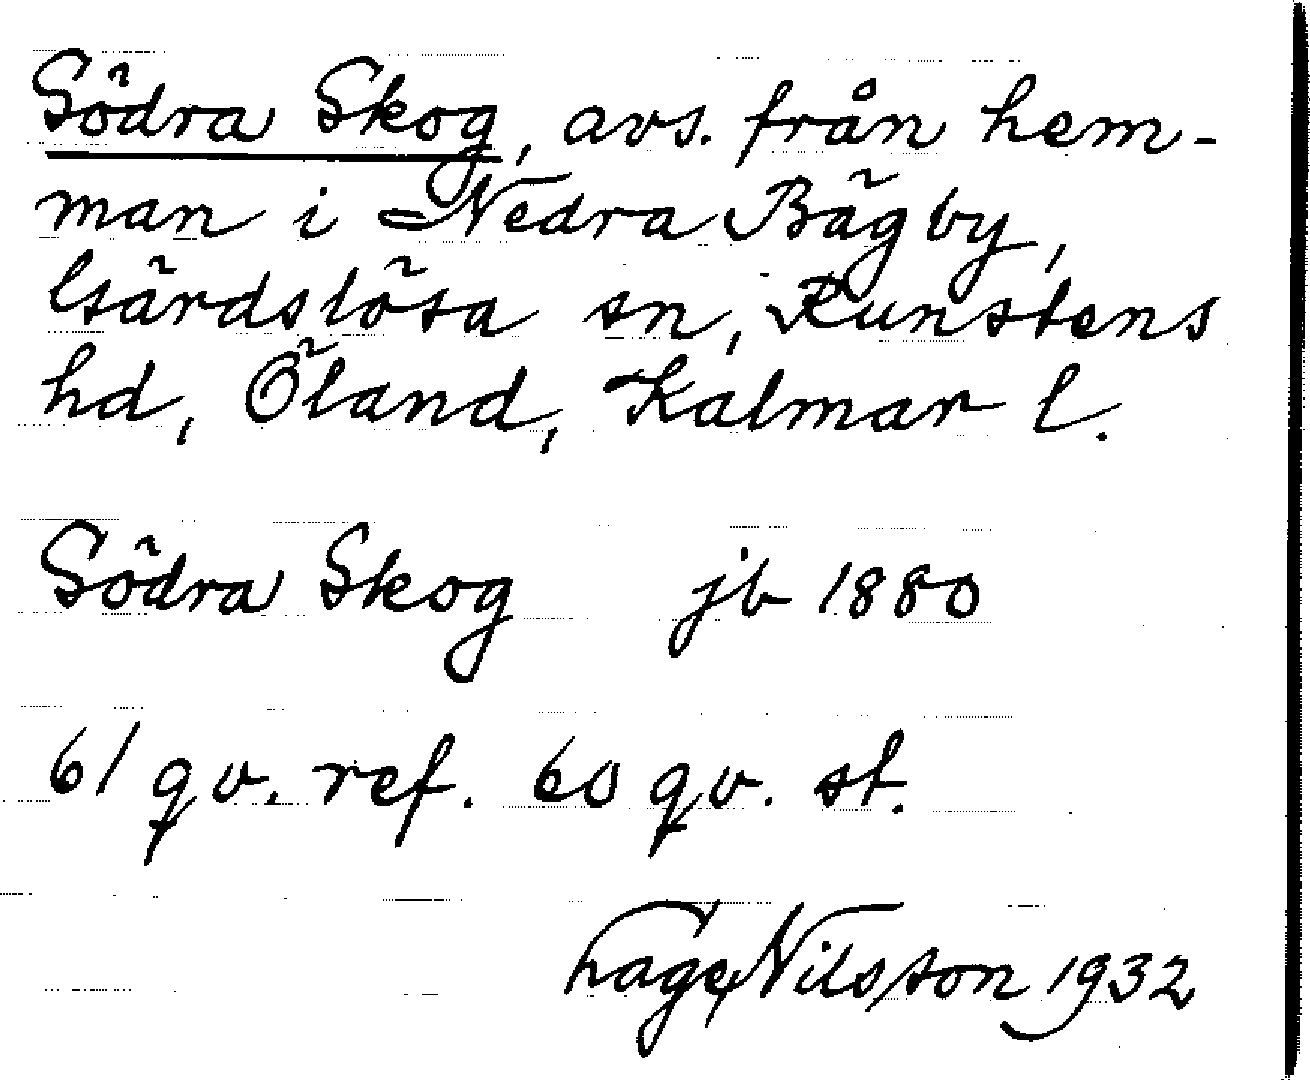 Södra Skog, avs. från hem-
man i Nedra Bägby,
Gärdslösa sn, Runstens
hd, Öland, Kalmar l.
Södra Skog jb 1880
61 qv. ref. 60 qv. st.
Tage Nilsson 1932